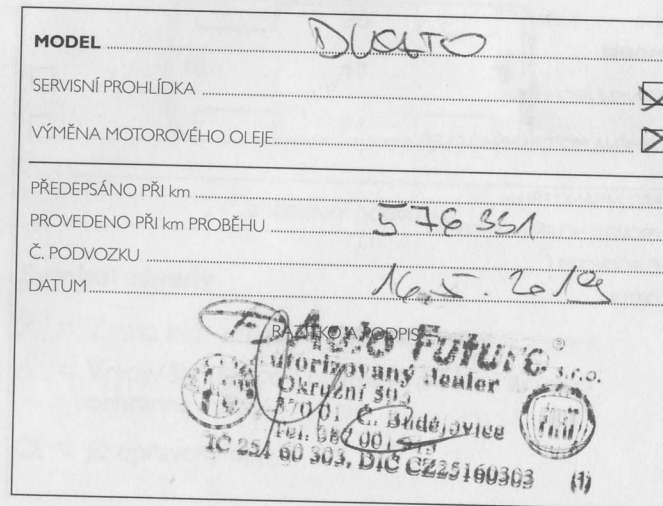 MODEL DUCATO
SERVISNÍ PROHLÍDKA
VÝMĚNA MOTOROVÉHO OLEJE
PŘEDEPSÁNO PŘI km
PROVEDENO PŘI km PROBĚHU 576 351
Č. PODVOZKU
DATUM 16. V. 2019
RAZÍTKO A PODPIS
Auto Future s.r.o.
Autorizovaný dealer
Okružní
370 01 Č. Budějovice
Tel. 387 001
IČ 251 60 303, DIČ CZ25160303 (1)